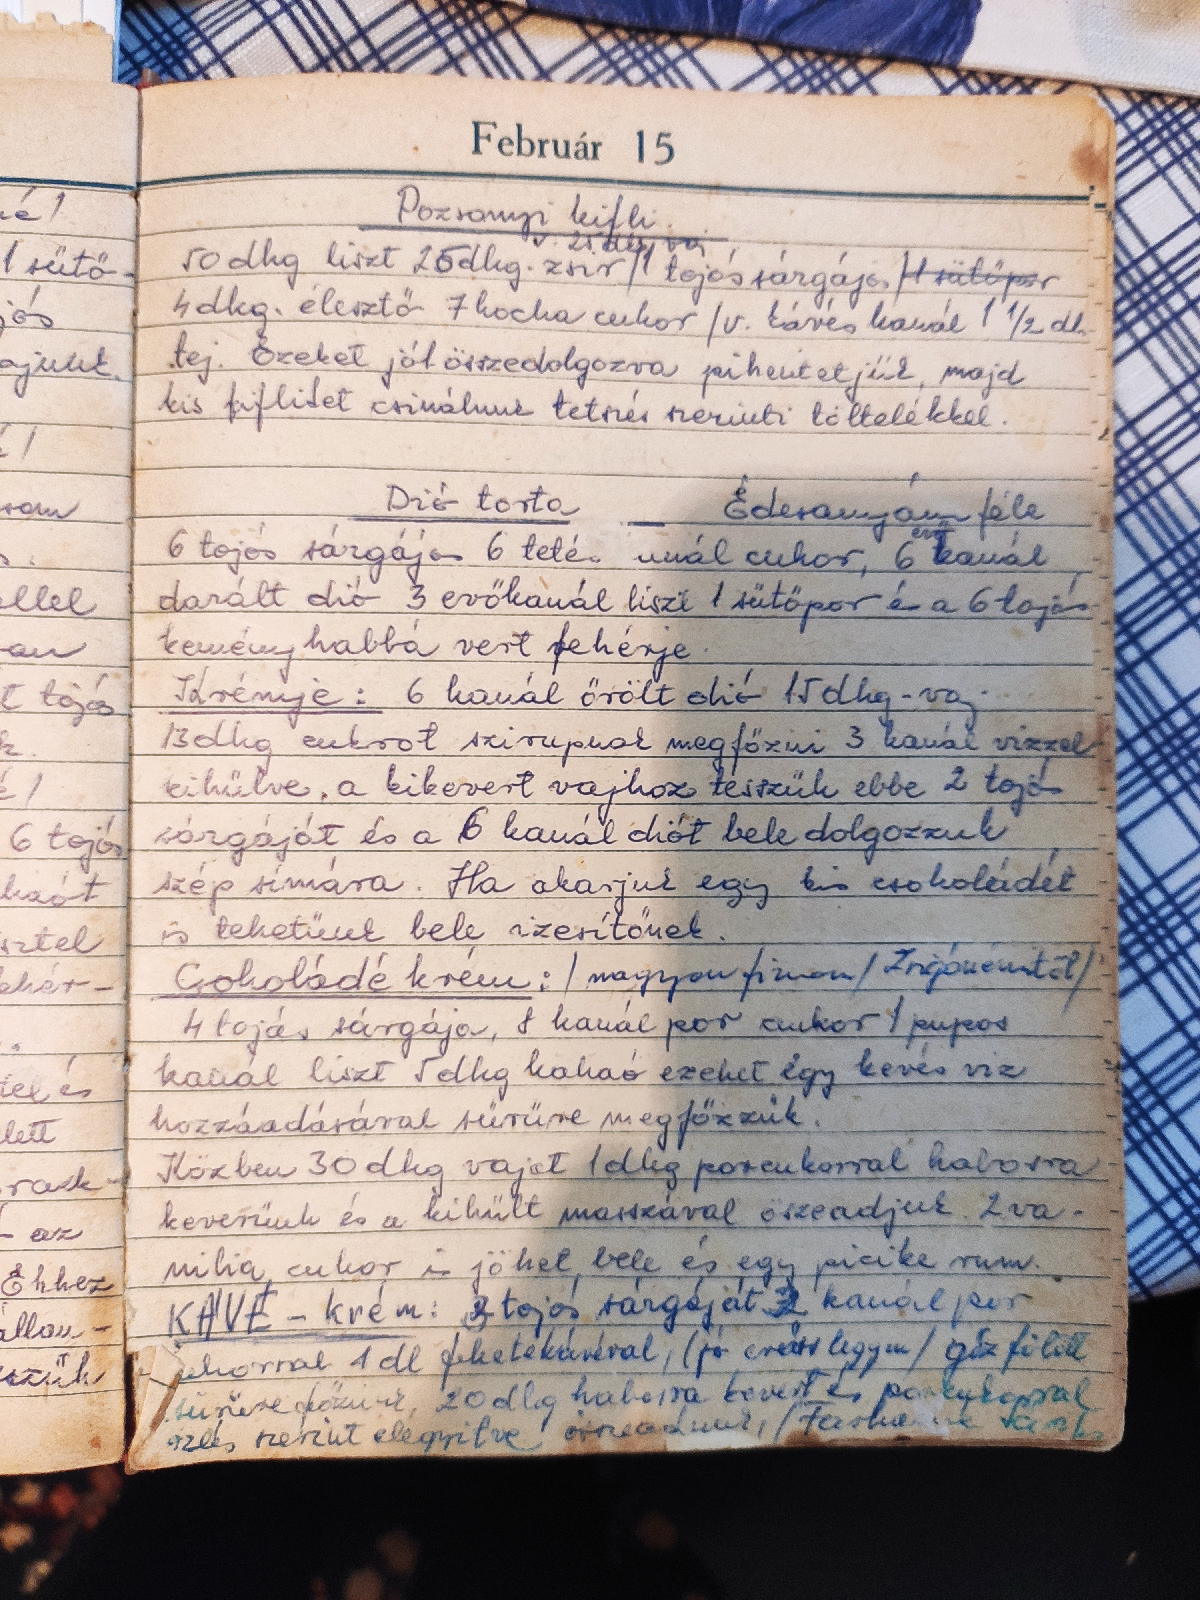 né/
1 sütő-
jós
ajunk.
é/
ellel
t tojós
é/
6 tojós
kaót
sztel
ehér-
tel és
lett
- az
Ehhez
állan-
Február 15
Pozsonyi kifli
v. 25 dkg vaj
50 dkg liszt 25 dkg. zsir/1 tojós sárgája /1 sütőpor
4 dkg. élesztő 7 kocka cukor /v. kávés kanál 1 1/2 dl.
tej. Ezeket jól összedolgozva pihentetjük, majd
kis kifliket csinálunk tetszés szerinti töltelékkel.
Dió torta — Édesanyám féle
evő
6 tojós sárgája 6 teté. unál cukor, 6 kanál
darált dió 3 evőkanál liszt 1 sütőpor és a 6 tojós
kemény habbá vert fehérje.
Krémje: 6 kanál őrölt dió 15 dkg-vaj.
13 dkg cukrot szirupnak megfőzni 3 kanál vizzel
kihülve. a kikevert vajhoz tesszük ebbe 2 tojós
sárgáját és a 6 kanál diót bele dolgozzuk
szép simára. Ha akarjuk egy kis csokoládét
is tehetünk bele izesítőnek.
Csokoládé krém: / nagyon finom /
4 tojás sárgája, 8 kanál por cukor 1 pupos
kanál liszt 5 dkg kakaó ezeket egy kevés viz
hozzáadásával sürüre megfőzzük.
Közben 30 dkg vajat 1 dkg porcukorral habosra
keverünk és a kihült masszával öszeadjuk. 2 va-
nilia cukor is jöhet bele és egy picike rum.
KÁVÉ - krém: 3 tojós sárgáját 3 kanál por
cukorral 1 dl feketekávéval, (jó erős legyen/ gőz fölött
sürüre főzünk, 20 dkg habosra kevert és porcukorral
izlés szerint elegyitve összeadunk, /